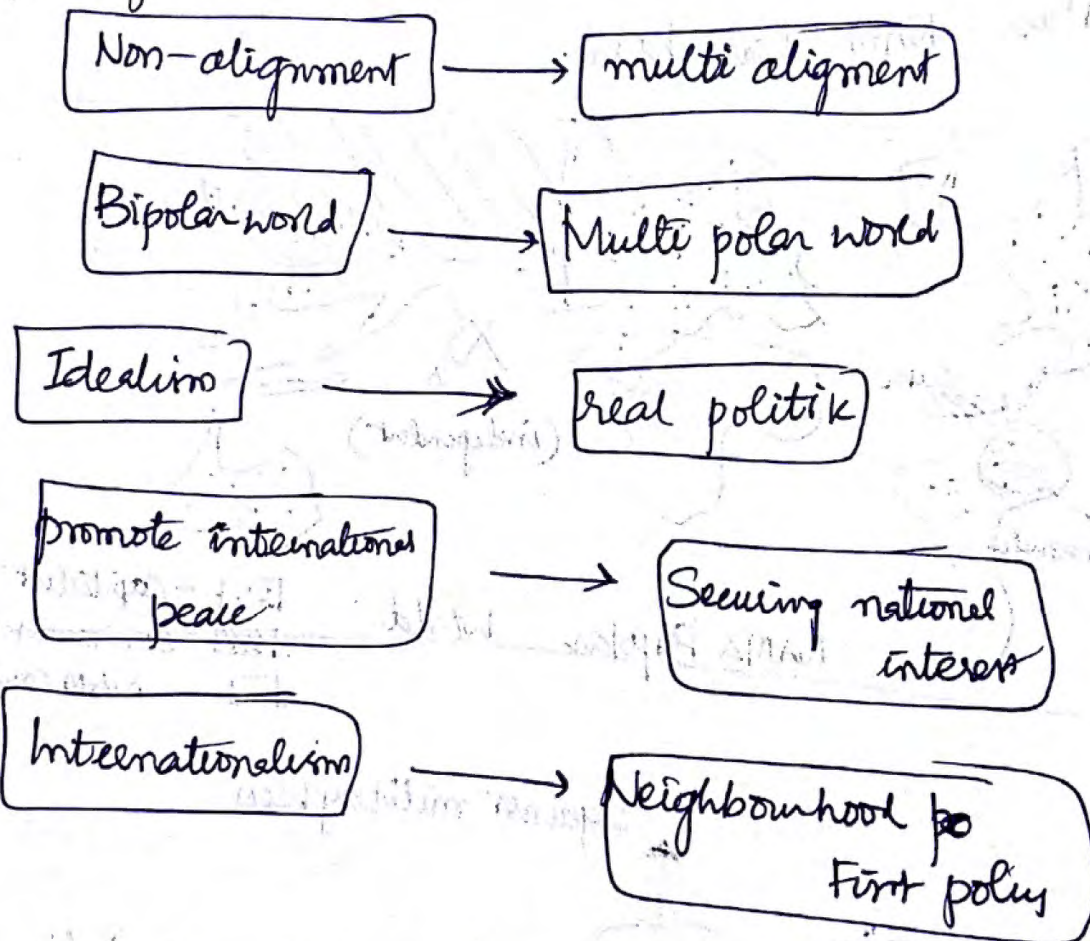 Non-alignment → multi aligment
Bipolar world → Multi polar world
Idealism → real politik
promote international
peace → Securing national
interest
Internationalism → Neighbourhood
First policy
(independent)